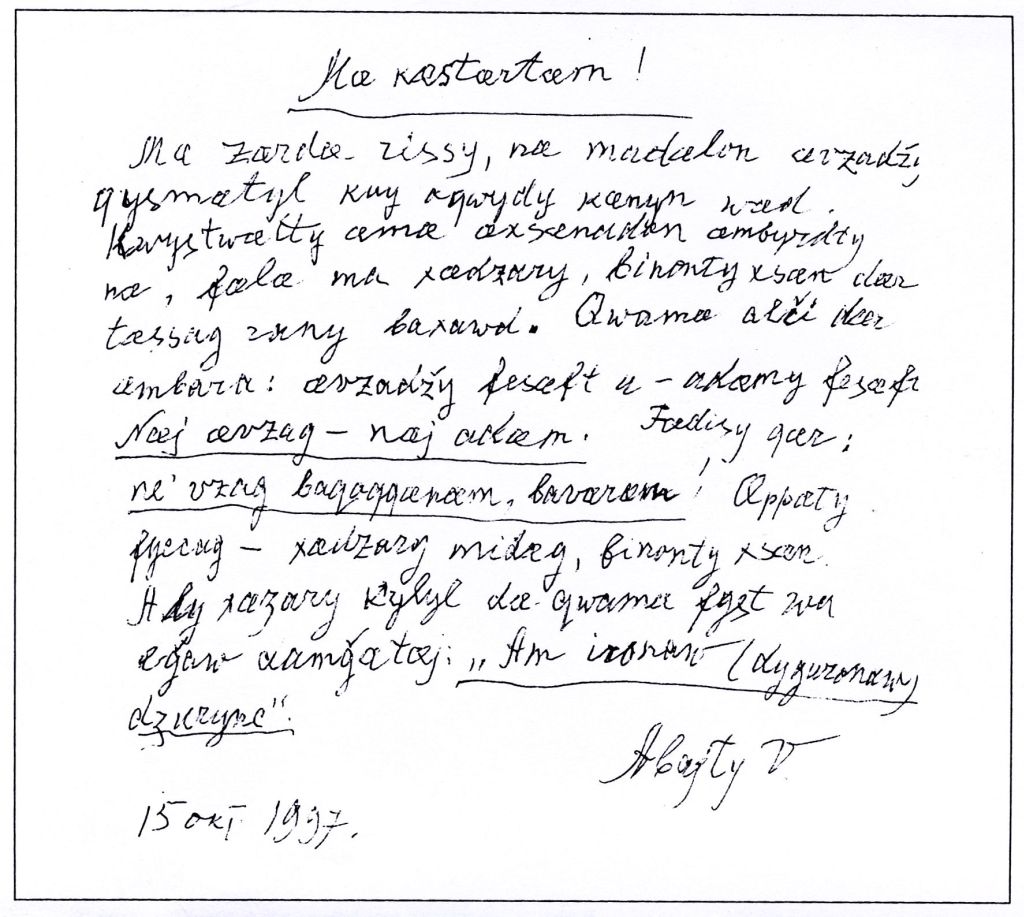 Mæ kæstærtæm!
Mæ zærdæ rissy, næ madælon ævzadžy
qysmætyl kuy aqwydy kænyn wæd.
Kwystwætty æmæ æxsænadon æmbyrdty
næ, fælæ ma xædzary, binonty xsæn dær
tæssag uny baxawd. Qwamæ alči dær
æmbara: ævzadžy fesæft u – adæmy fesæft
Næj ævzag – næj adæm. Fædisy qær:
ne'vzag baqaqqænæm, baværæm! Æppæty
fyccag – xædzary midæg, binonty xsæn.
Aly xæzary kʼylyl dæ qwama fyst wa
æǧdaw
„Am ironaw (dyguronaw)
dzurync“.
Abajty V
15 okt 1997.